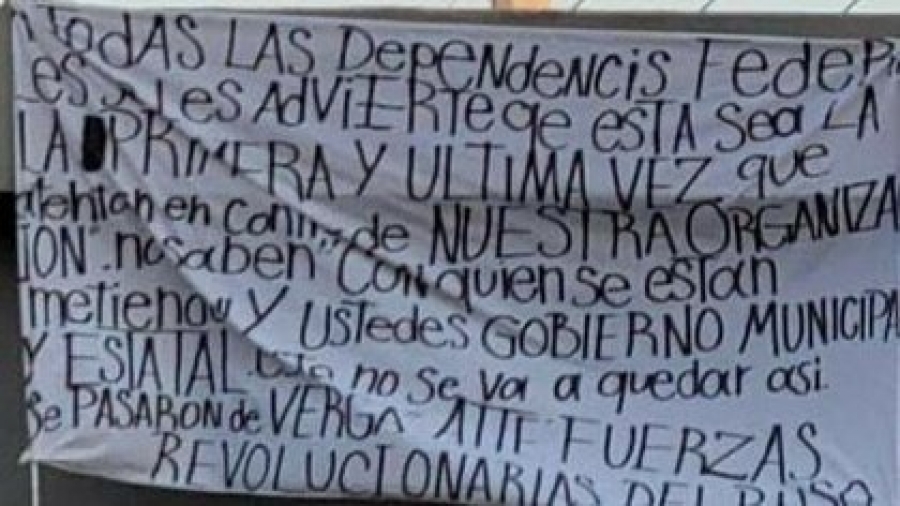 TodAS LAS DepENdENCiS Fede
LES AdViERTE qe ESTA Sea LA
LA PRIMERA Y ULTIMA VEZ que
en de NUESTRA ORGANIZA
ION". no saben" Con quien Se estan
metieno y USTEdES GOBIERNO MUNICIPA
Y ESTATAL. no Se va a quedar asi.
Se PASARON de VERGA ATTE FUERZAS
REVOLUCIONARIAS DEL RUSO